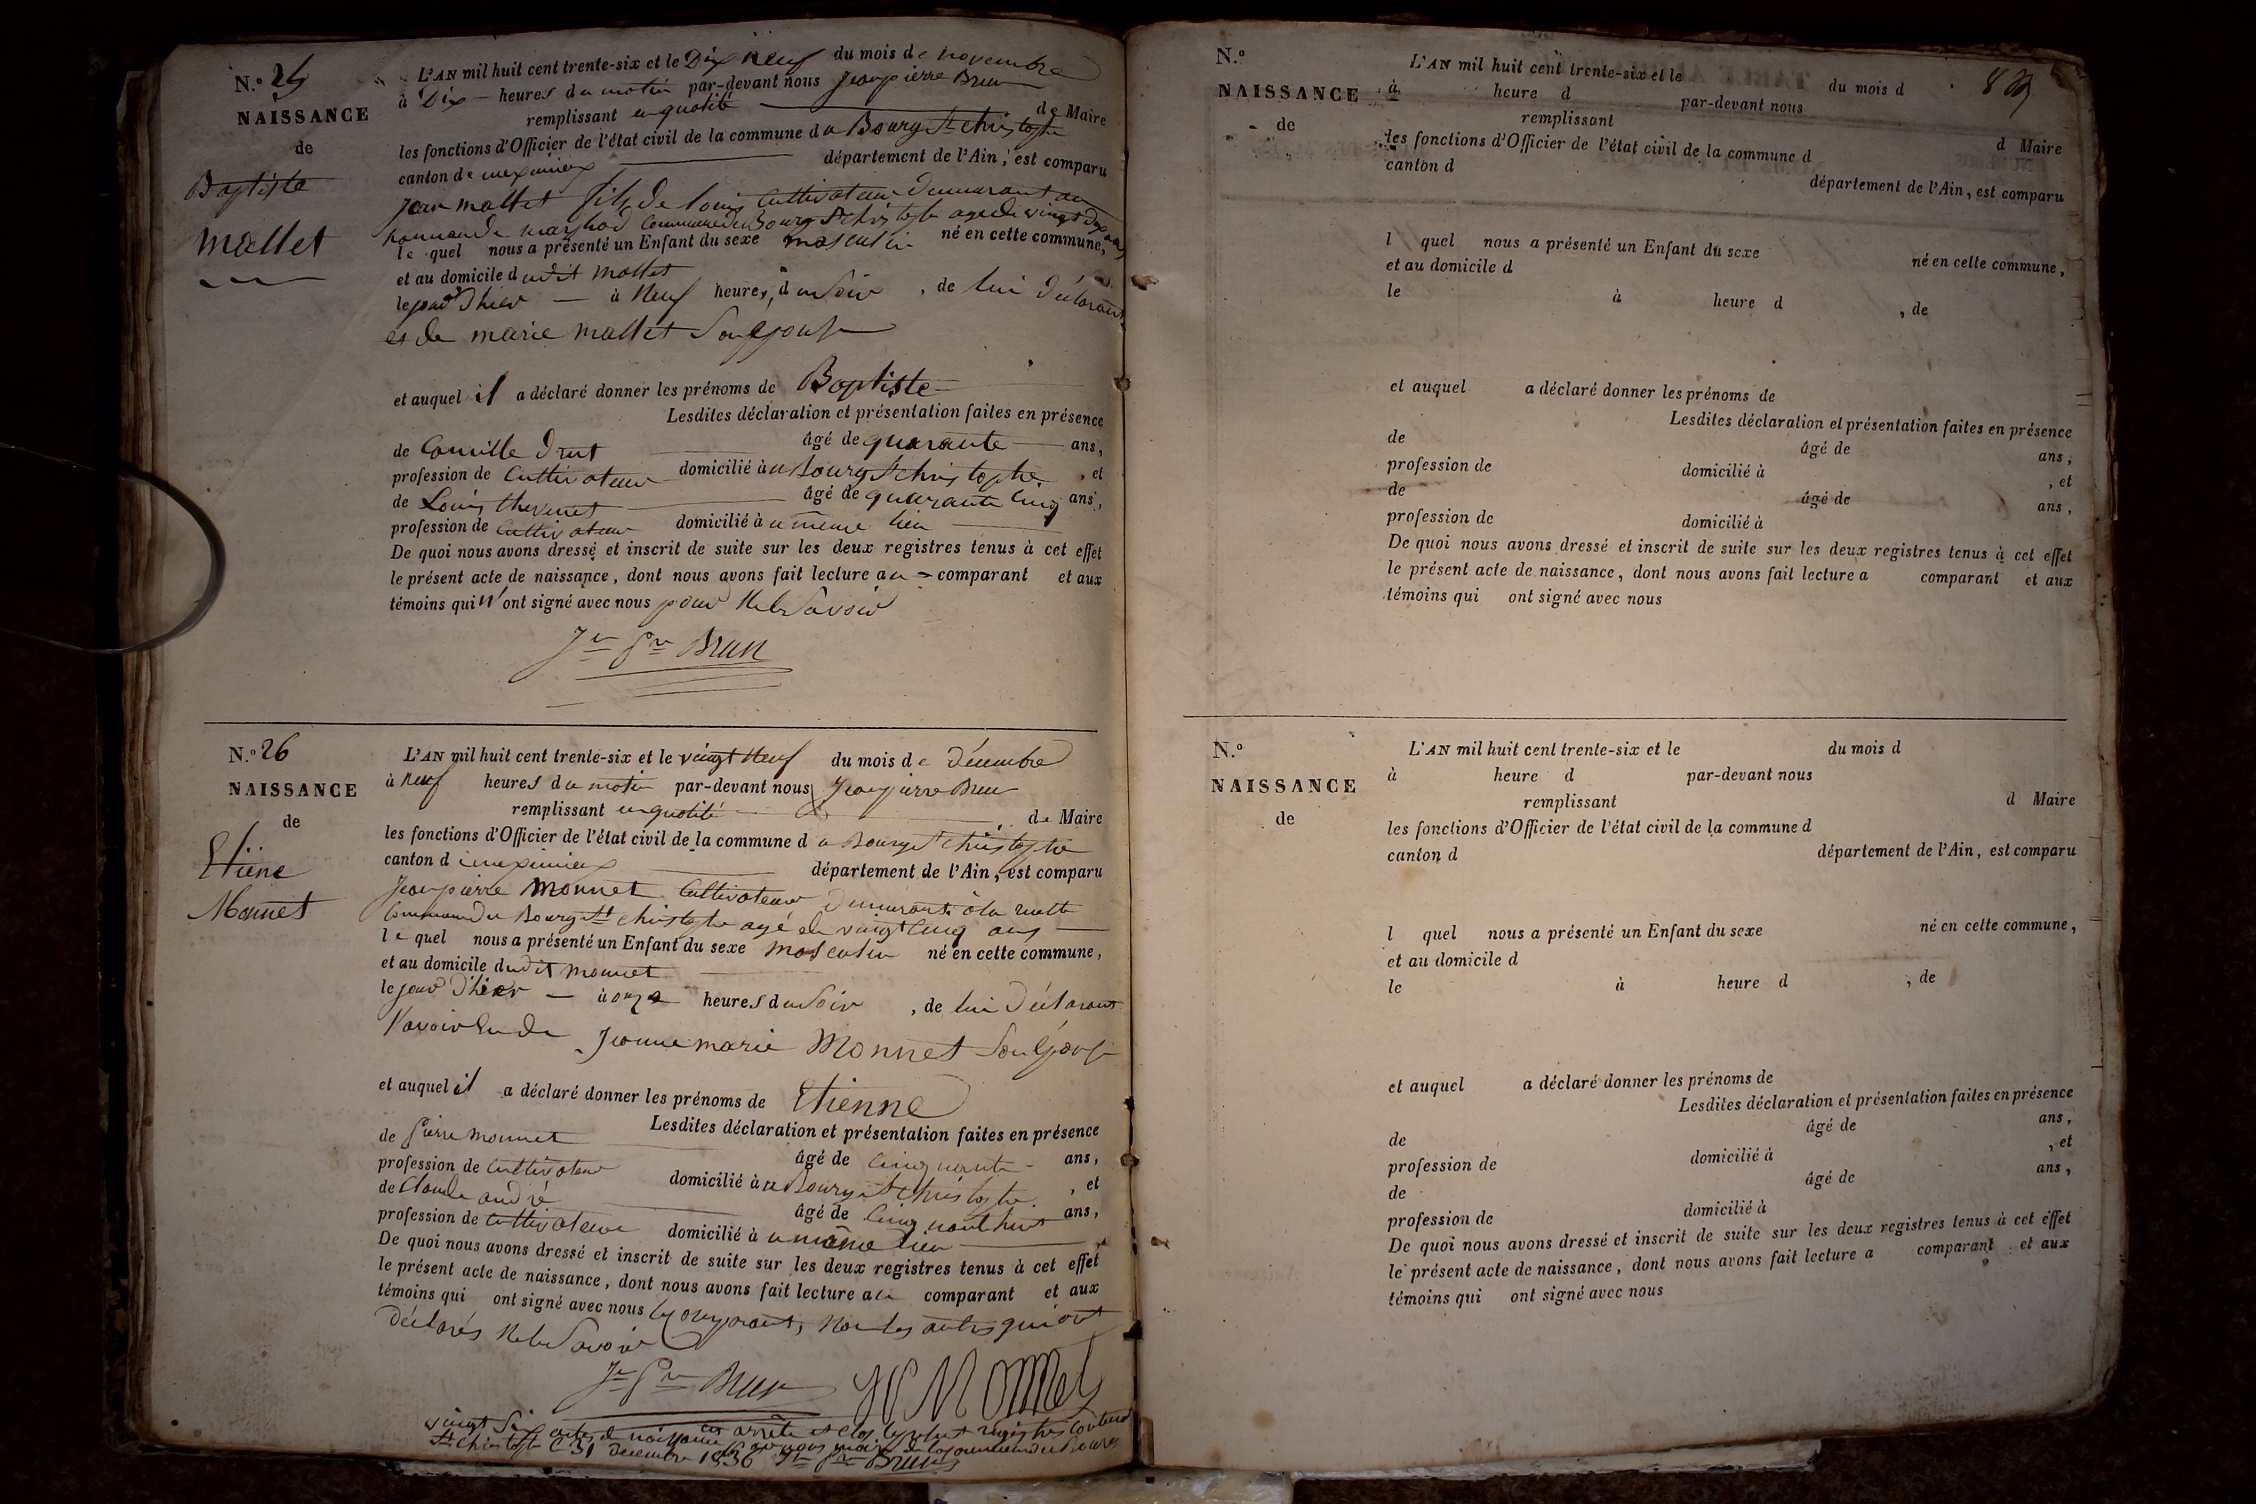 N.º 25
NAISSANCE
de
Baptiste
Mallet
L'AN mil huit cent trente-six et le Dix neuf du mois de novembre
à Dix heures du matin par-devant nous Jean pierre Brun
remplissant en qualité de Maire
les fonctions d'Officier de l'état civil de la commune du Bourg St christophe
canton de meximieux département de l'Ain, est comparu
jean mallet fils de louis Cultivateur demeurant au
commune du Bourg St christophe agé de vingt
le quel nous a présenté un Enfant du sexe masculin né en cette commune,
et au domicile dudit mallet
le jour d'hier à Neuf heures, du Soir, de lui déclarant
et de marie mallet Son Epouse
et auquel il a déclaré donner les prénoms de Baptiste
Lesdites déclaration et présentation faites en présence
de Camille Drut âgé de quarante ans,
profession de Cultivateur domicilié au Bourg St christophe, et
de Louis thevenet âgé de quarante Cinq ans,
profession de Cultivateur domicilié au même lieu
De quoi nous avons dressé et inscrit de suite sur les deux registres tenus à cet effet
le présent acte de naissance, dont nous avons fait lecture au comparant et aux
témoins qui n'ont signé avec nous pour Ne le Savoir
Jn Pre Brun
N.º 26
NAISSANCE
de
Etiene
Monnet
L'AN mil huit cent trente-six et le vingt Neuf du mois de décembre
à Neuf heures du matin par-devant nous Jean pierre Brun
remplissant en qualité de Maire
les fonctions d'Officier de l'état civil de la commune du Bourg St christophe
canton de meximieux département de l'Ain, est comparu
Jean pierre Monnet Cultivateur demeurant à la
Commune du Bourg St christophe agé de vingt Cinq ans
le quel nous a présenté un Enfant du sexe masculin né en cette commune,
et au domicile dudit monnet
le jour d'hier à onze heures du Soir, de lui déclarant
l'avoir Eu de Jeanne marie Monnet Son Epouse
et auquel il a déclaré donner les prénoms de Etienne
Lesdites déclaration et présentation faites en présence
de Pierre monnet âgé de Cinquante ans,
profession de Cultivateur domicilié au Bourg St christophe, et
de Claude andré âgé de Cinquante huit ans,
profession de Cultivateur domicilié au même lieu
De quoi nous avons dressé et inscrit de suite sur les deux registres tenus à cet effet
le présent acte de naissance, dont nous avons fait lecture au comparant et aux
témoins qui ont signé avec nous le comparant, Non les autres qui ont
déclarés Ne le Savoir
Jn Pre Brun JP Monnet
vingt Six actes de naissances arrêté et clos le présent registre contenant
par nous maire de la commune du Bourg
St christophe le 31 décembre 1836 Jn Pre Brun
N.º
NAISSANCE
de
L'AN mil huit cent trente-six et le du mois d
à heure d par-devant nous
remplissant d Maire
les fonctions d'Officier de l'état civil de la commune d
canton d département de l'Ain, est comparu
l quel nous a présenté un Enfant du sexe né en cette commune,
et au domicile d
le à heure d , de
et auquel a déclaré donner les prénoms de
Lesdites déclaration et présentation faites en présence
de âgé de ans,
profession de domicilié à , et
de âgé de ans,
profession de domicilié à
De quoi nous avons dressé et inscrit de suite sur les deux registres tenus à cet effet
le présent acte de naissance, dont nous avons fait lecture a comparant et aux
témoins qui ont signé avec nous
N.º
NAISSANCE
de
L'AN mil huit cent trente-six et le du mois d
à heure d par-devant nous
remplissant d Maire
les fonctions d'Officier de l'état civil de la commune d
canton d département de l'Ain, est comparu
l quel nous a présenté un Enfant du sexe né en cette commune,
et au domicile d
le à heure d , de
et auquel a déclaré donner les prénoms de
Lesdites déclaration et présentation faites en présence
de âgé de ans,
profession de domicilié à , et
de âgé de ans,
profession de domicilié à
De quoi nous avons dressé et inscrit de suite sur les deux registres tenus à cet effet
le présent acte de naissance, dont nous avons fait lecture a comparant et aux
témoins qui ont signé avec nous